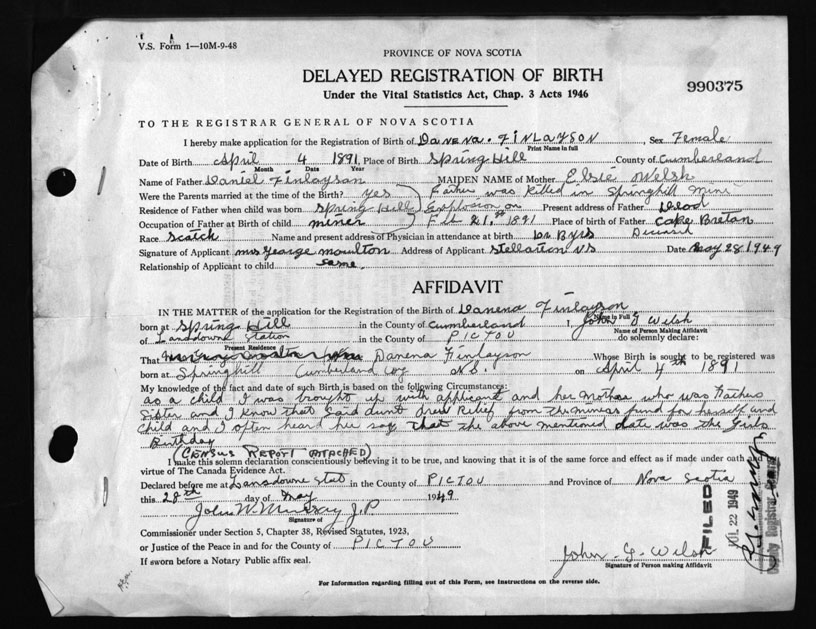 V.S. Form 1—10M-9-48
PROVINCE OF NOVA SCOTIA
DELAYED REGISTRATION OF BIRTH
990375
Under the Vital Statistics Act, Chap. 3 Acts 1946
TO THE REGISTRAR GENERAL OF NOVA SCOTIA
I hereby make application for the Registration of Birth of Danena. FINLAYSON, Sex Female
Print Name in full
Date of Birth April 4 1891, Place of Birth Spring Hill County of Cumberland
Month Date Year
Name of Father Daniel Finlayson MAIDEN NAME of Mother Elsie Welsh
Were the Parents married at the time of the Birth? yes Father was killed in Springhill Mine
Residence of Father when child was born Spring Hill Explosion on Present address of Father Dead
Occupation of Father at Birth of child miner Feb 21st 1891 Place of birth of Father Cape Bretan
Race Scotch Name and present address of Physician in attendance at birth Dr Byrs Deceased
Signature of Applicant Mrs George Moulton Address of Applicant Stellarton NS Date May 28, 1949
Relationship of Applicant to child same.
AFFIDAVIT
IN THE MATTER of the application for the Registration of Birth of Danena Finlayson
Name in Full
born at Spring Hill in the County of Cumberland I, John G Welsh
Name of Person Making Affidavit
of Lansdowne Station in the County of PICTOU do solemnly declare:
Present Residence
That Danena Finlayson Whose Birth is sought to be registered was
born at Springhill Cumberland Coy N.S. on April 4th 1891
My knowledge of the fact and date of such Birth is based on the following Circumstances:
as a child I was brought up with applicant and her Mother who was Fathers
Sister and I know that said aunt drew Relief from the miners fund for herself and
child and I often heard her say that the above mentioned date was the Girls
Birthday
(CENSUS REPORT ATTACHED)
I make this solemn declaration conscientiously believing it to be true, and knowing that it is of the same force and effect as if made under oath and by
virtue of The Canada Evidence Act.
Declared before me at Lansdowne Stat in the County of PICTOU and Province of Nova Scotia
this 28th day of May 1949
John W. Murray J.P
Signature of
Commissioner under Section 5, Chapter 38, Revised Statutes, 1923,
or Justice of the Peace in and for the County of PICTOU
If sworn before a Notary Public affix seal.
John G. Welsh
Signature of Person making Affidavit
FILED
JUL 22 1949
For Information regarding filling out of this Form, see Instructions on the reverse side.